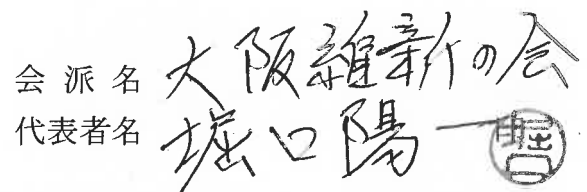 会派名 大阪維新の会
代表者名 堀口陽一